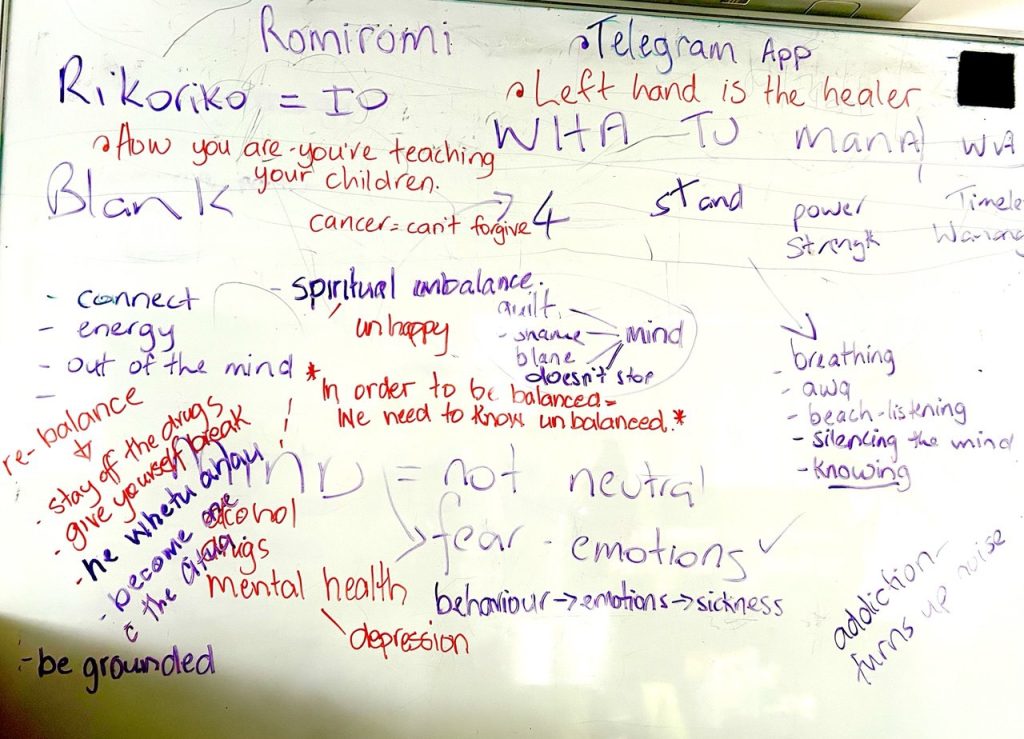 Romiromi
Telegram App
Rikoriko = IO
Left hand is the healer
How you are-you're teaching
your children.
WHA TU Mana
Blank
4 stand power
Streng*
cancer = can't forgive
- connect
- energy
- out of the mind
-
- spiritual unbalance.
unhappy
guilt
- shame
blane
doesn't stop
mind
* In order to be balanced =
We need to know unbalanced. *
breathing
- awa
- beach-listening
- silencing the mind
- knowing
re-balance
- stay off the drugs
- give yourself break
- he whetu
- become one
c the atua
- be grounded
MIND = not neutral
fear - emotions ✓
alcohol
drugs
mental health
depression
behaviour → emotions → sickness
addiction -
turns up noise